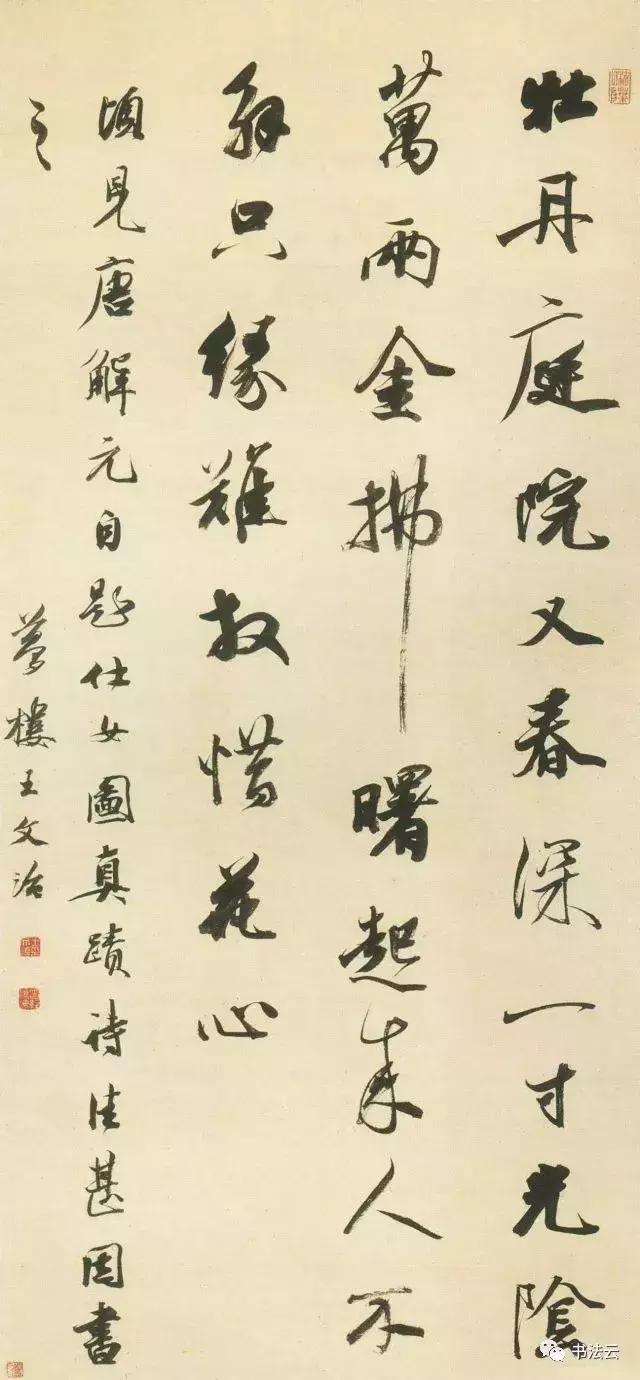 牡丹庭院又春深一寸光陰
萬兩金拂曙起來人不
解只緣難放惜花心
頃見唐解元自題仕女圖真蹟詩佳甚因書
之
夢樓王文治
书法云